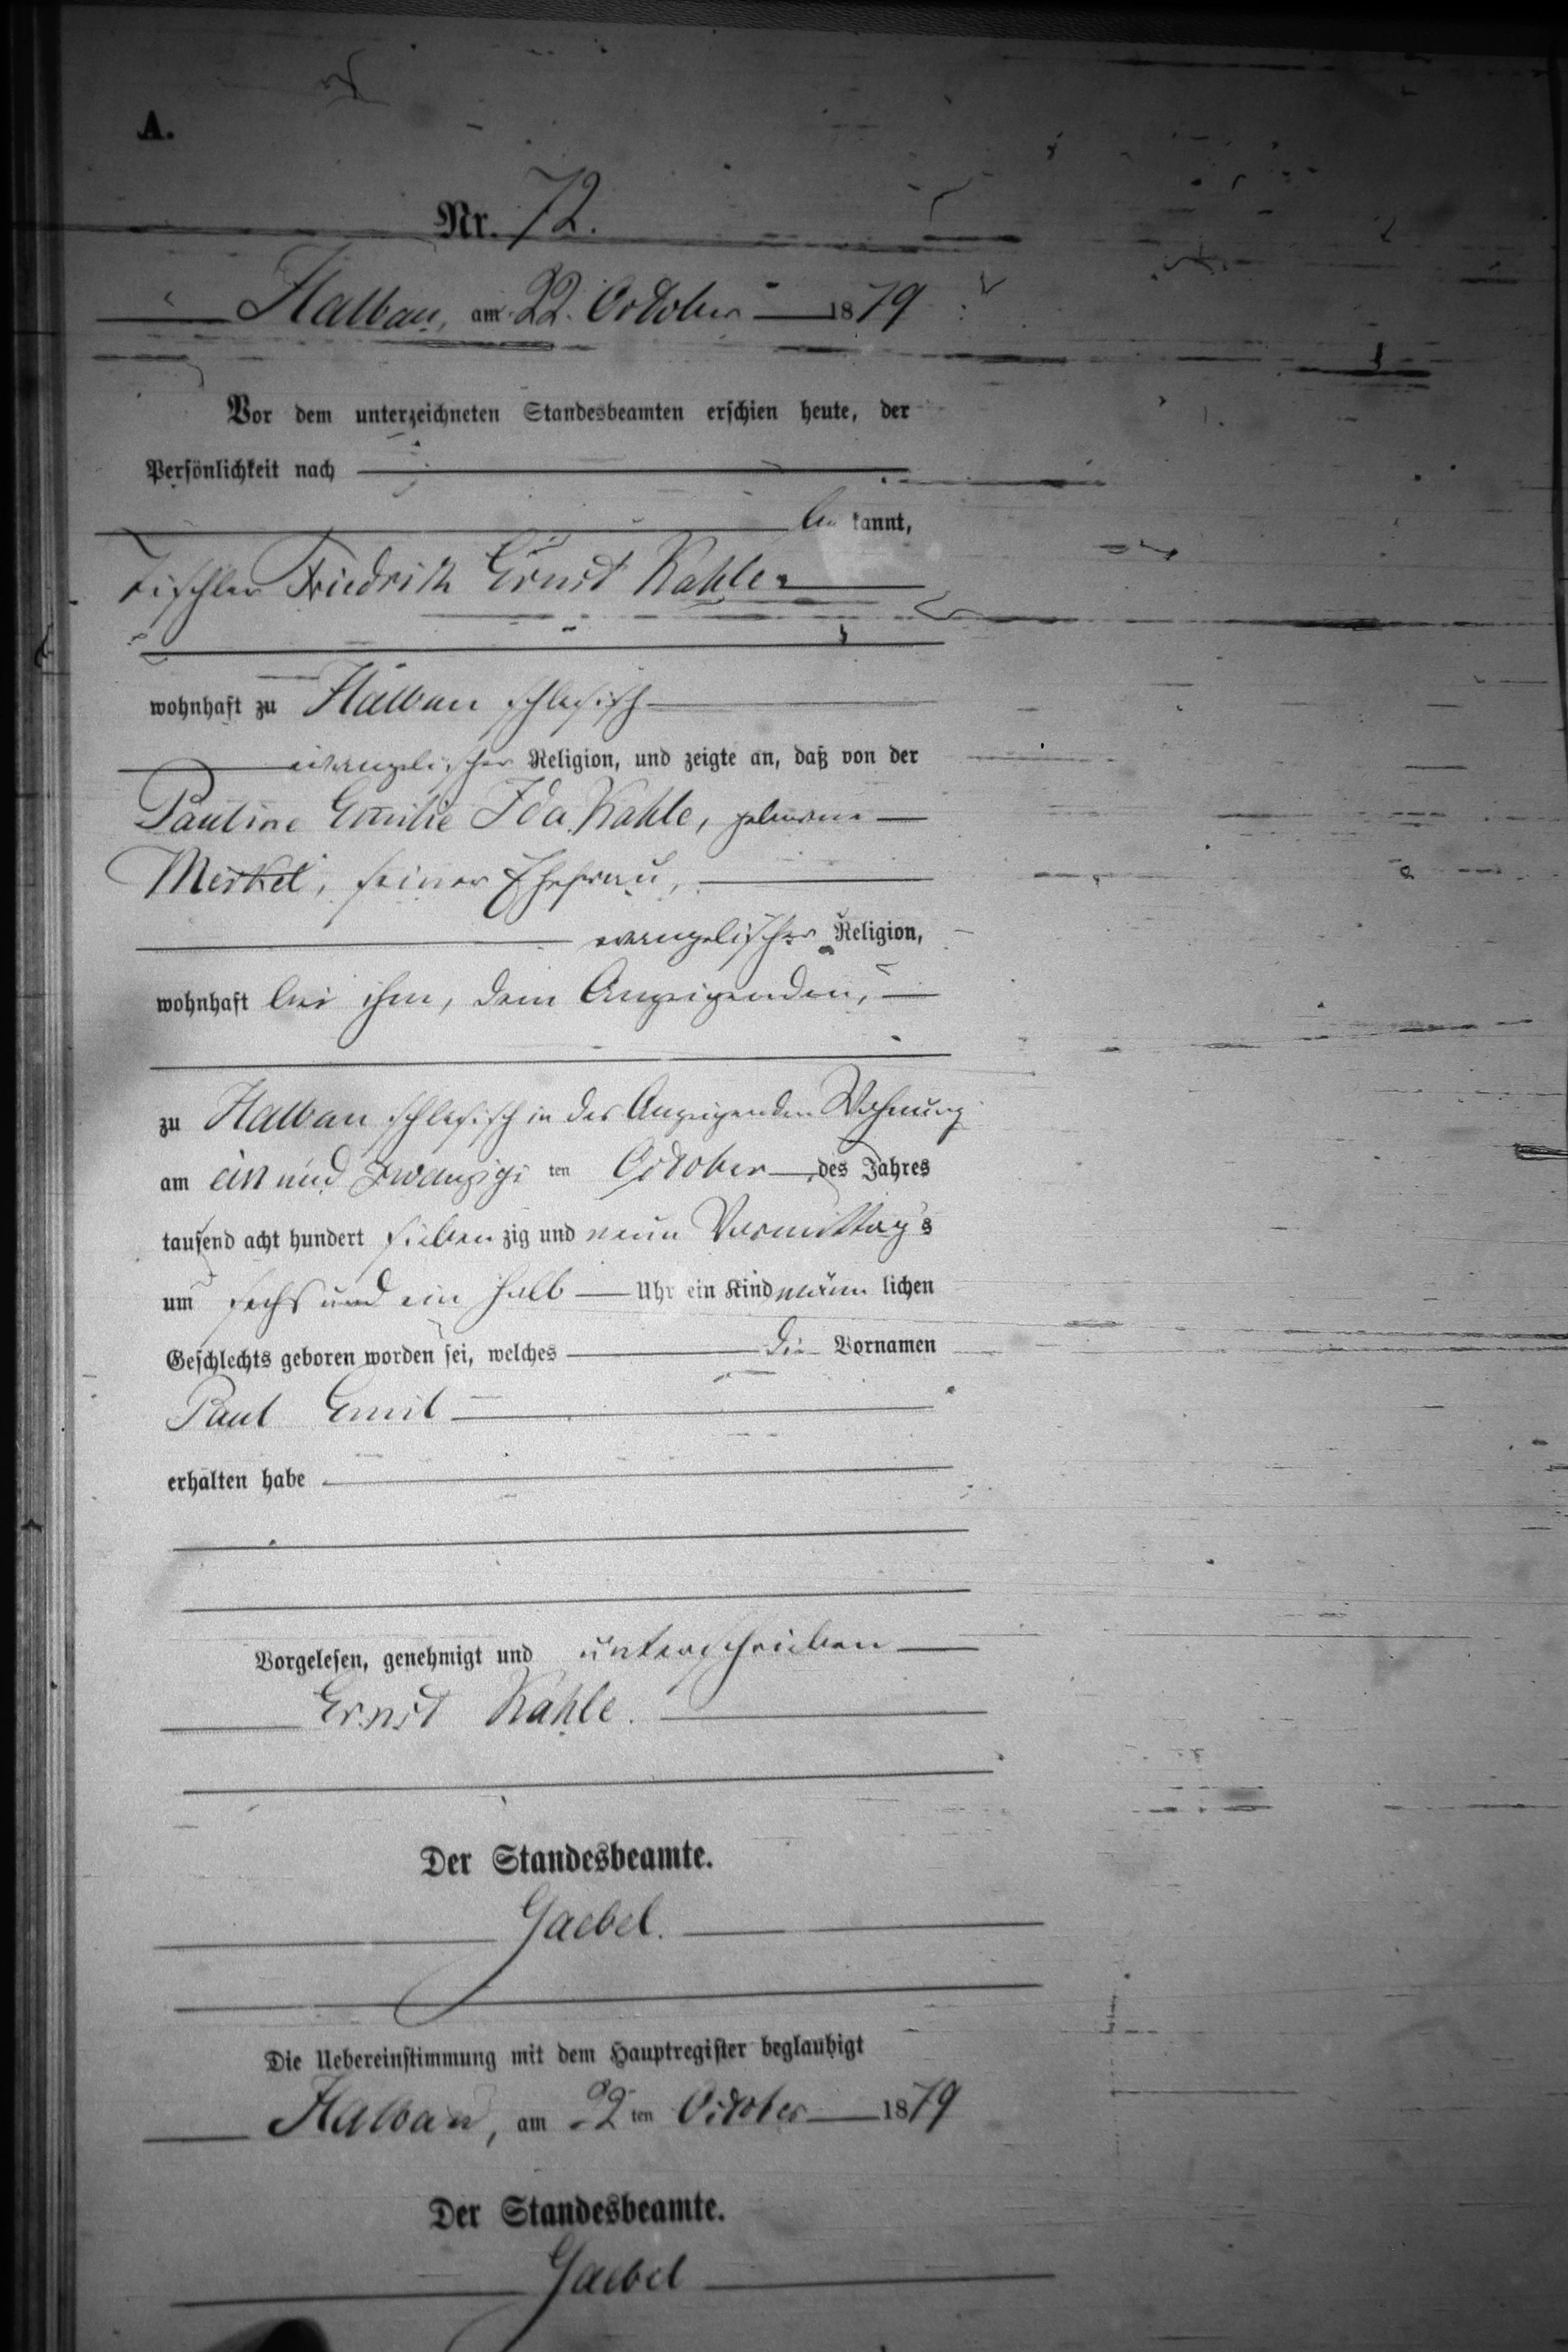 A.
Nr. 72.
Halbau, am 22. October 1879
Vor dem unterzeichneten Standesbeamten erschien heute, der
Persönlichkeit nach
be kannt,
Tischler Friedrich Ernst Kahle
wohnhaft zu Halbau schlesisch
evangelischer Religion, und zeigte an, daß von der
Pauline Emilie Ida Kahle, geborene
Merkel, seiner Ehefrau,
evangelischer Religion,
wohnhaft bei ihm, dem Anzeigenden,
zu Halbau schlesisch in des Anzeigenden Wohnung
am ein und zwanzigs ten October des Jahres
tausend acht hundert sieben zig und neun Vormittags
um sechs und ein halb Uhr ein Kind männ lichen
Geschlechts geboren worden sei, welches die Vornamen
Paul Emil
erhalten habe
Vorgelesen, genehmigt und unterschrieben
Ernst Kahle.
Der Standesbeamte.
Gaebel.
Die Uebereinstimmung mit dem Hauptregister beglaubigt
Halbau, am 22 ten October 1879
Der Standesbeamte.
Gaebel